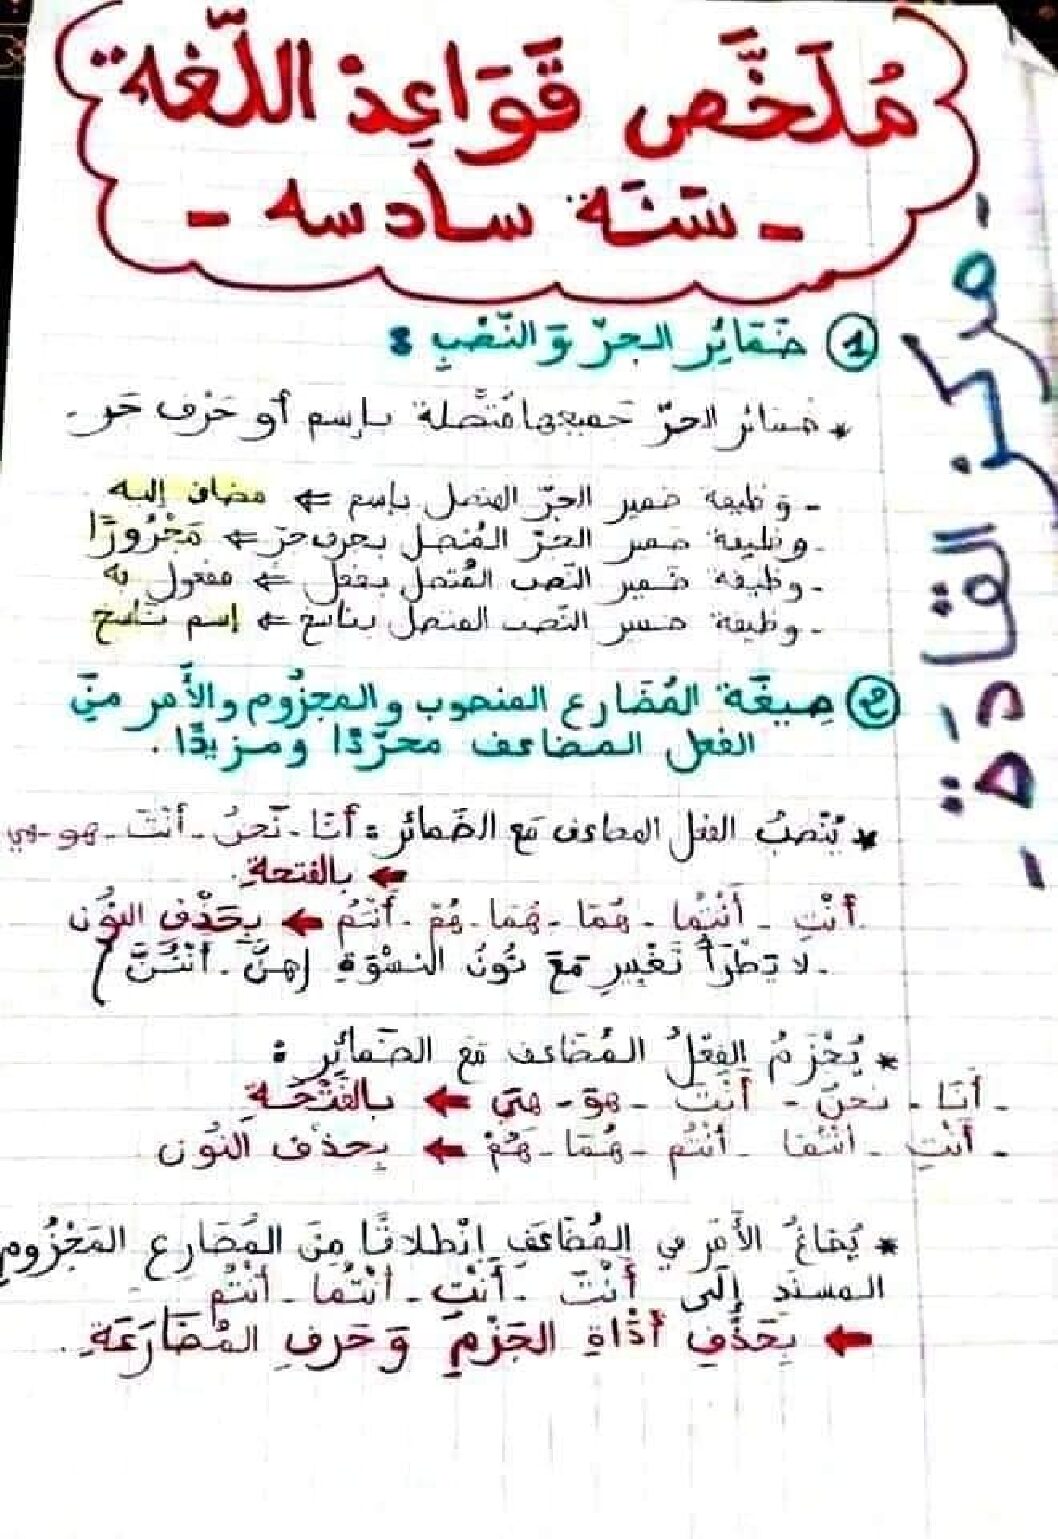 مُلَخَّص قَوَاعِد اللّغة
- سَنَة سادسه -
① ضَمَائِر الجرّ وَالنّصْبِ :
* ضمائر الجرّ جَميعها مُتَّصلة بإسم أو حَرْف جَر.
- وظيفة ضمير الجرّ المتصل بإسم ⇐ مضاف إليه
- وظيفة ضمير الجرّ المُتصل بحرف جرّ ⇐ مَجْرُورًا
- وظيفة ضَمير النّصب المُتصل بفعل ⇐ مفعول به
- وظيفة ضمير النّصب المتصل بناسخ ⇐ إسم نَاسخ
② صِيغَة المُضَارع المنصوب والمجزُوم والأَمر مِنَ
الفعل المضاعف مجرّدًا ومزيدًا.
* يُنْصَبُ الفعل المضاعف مَع الضَمائر : أنَا - نَحنُ - أنْتَ - هو - هي
← بالفتحةِ.
أَنْتِ - أَنْتُمَا - هُمَا - هُمَا - هُمْ - أَنْتُمُ ← بِحَذْف النُون
- لا يَطْرَأُ تَغْيير مَعَ نُونُ النسْوَةِ (هنَّ - أنْتُنَّ)
* يُجْزَمُ الفِعْلُ المُضَاعف مَع الضَمائِرِ :
- أَنَا - نحنُ - أَنْتَ - هوَ - هيَ ← بالفَتْحَةِ
- أَنْتِ - أنْتُمَا - أنْتُم - هُمَا - هُمْ ← بِحذف النُون
* يُصَاغُ الأَمْر في المُضَاعَفِ انْطلاقًا مِنَ المُضَارِع المَجْزُومِ
المسنَد إلَى أَنْتَ - أَنْتِ - أنْتُما - أَنْتُم
← بِحَذْفِ أدَاةِ الجَزْمِ وَحَرفِ المُضَارَعَةِ.
- مركز القادة -